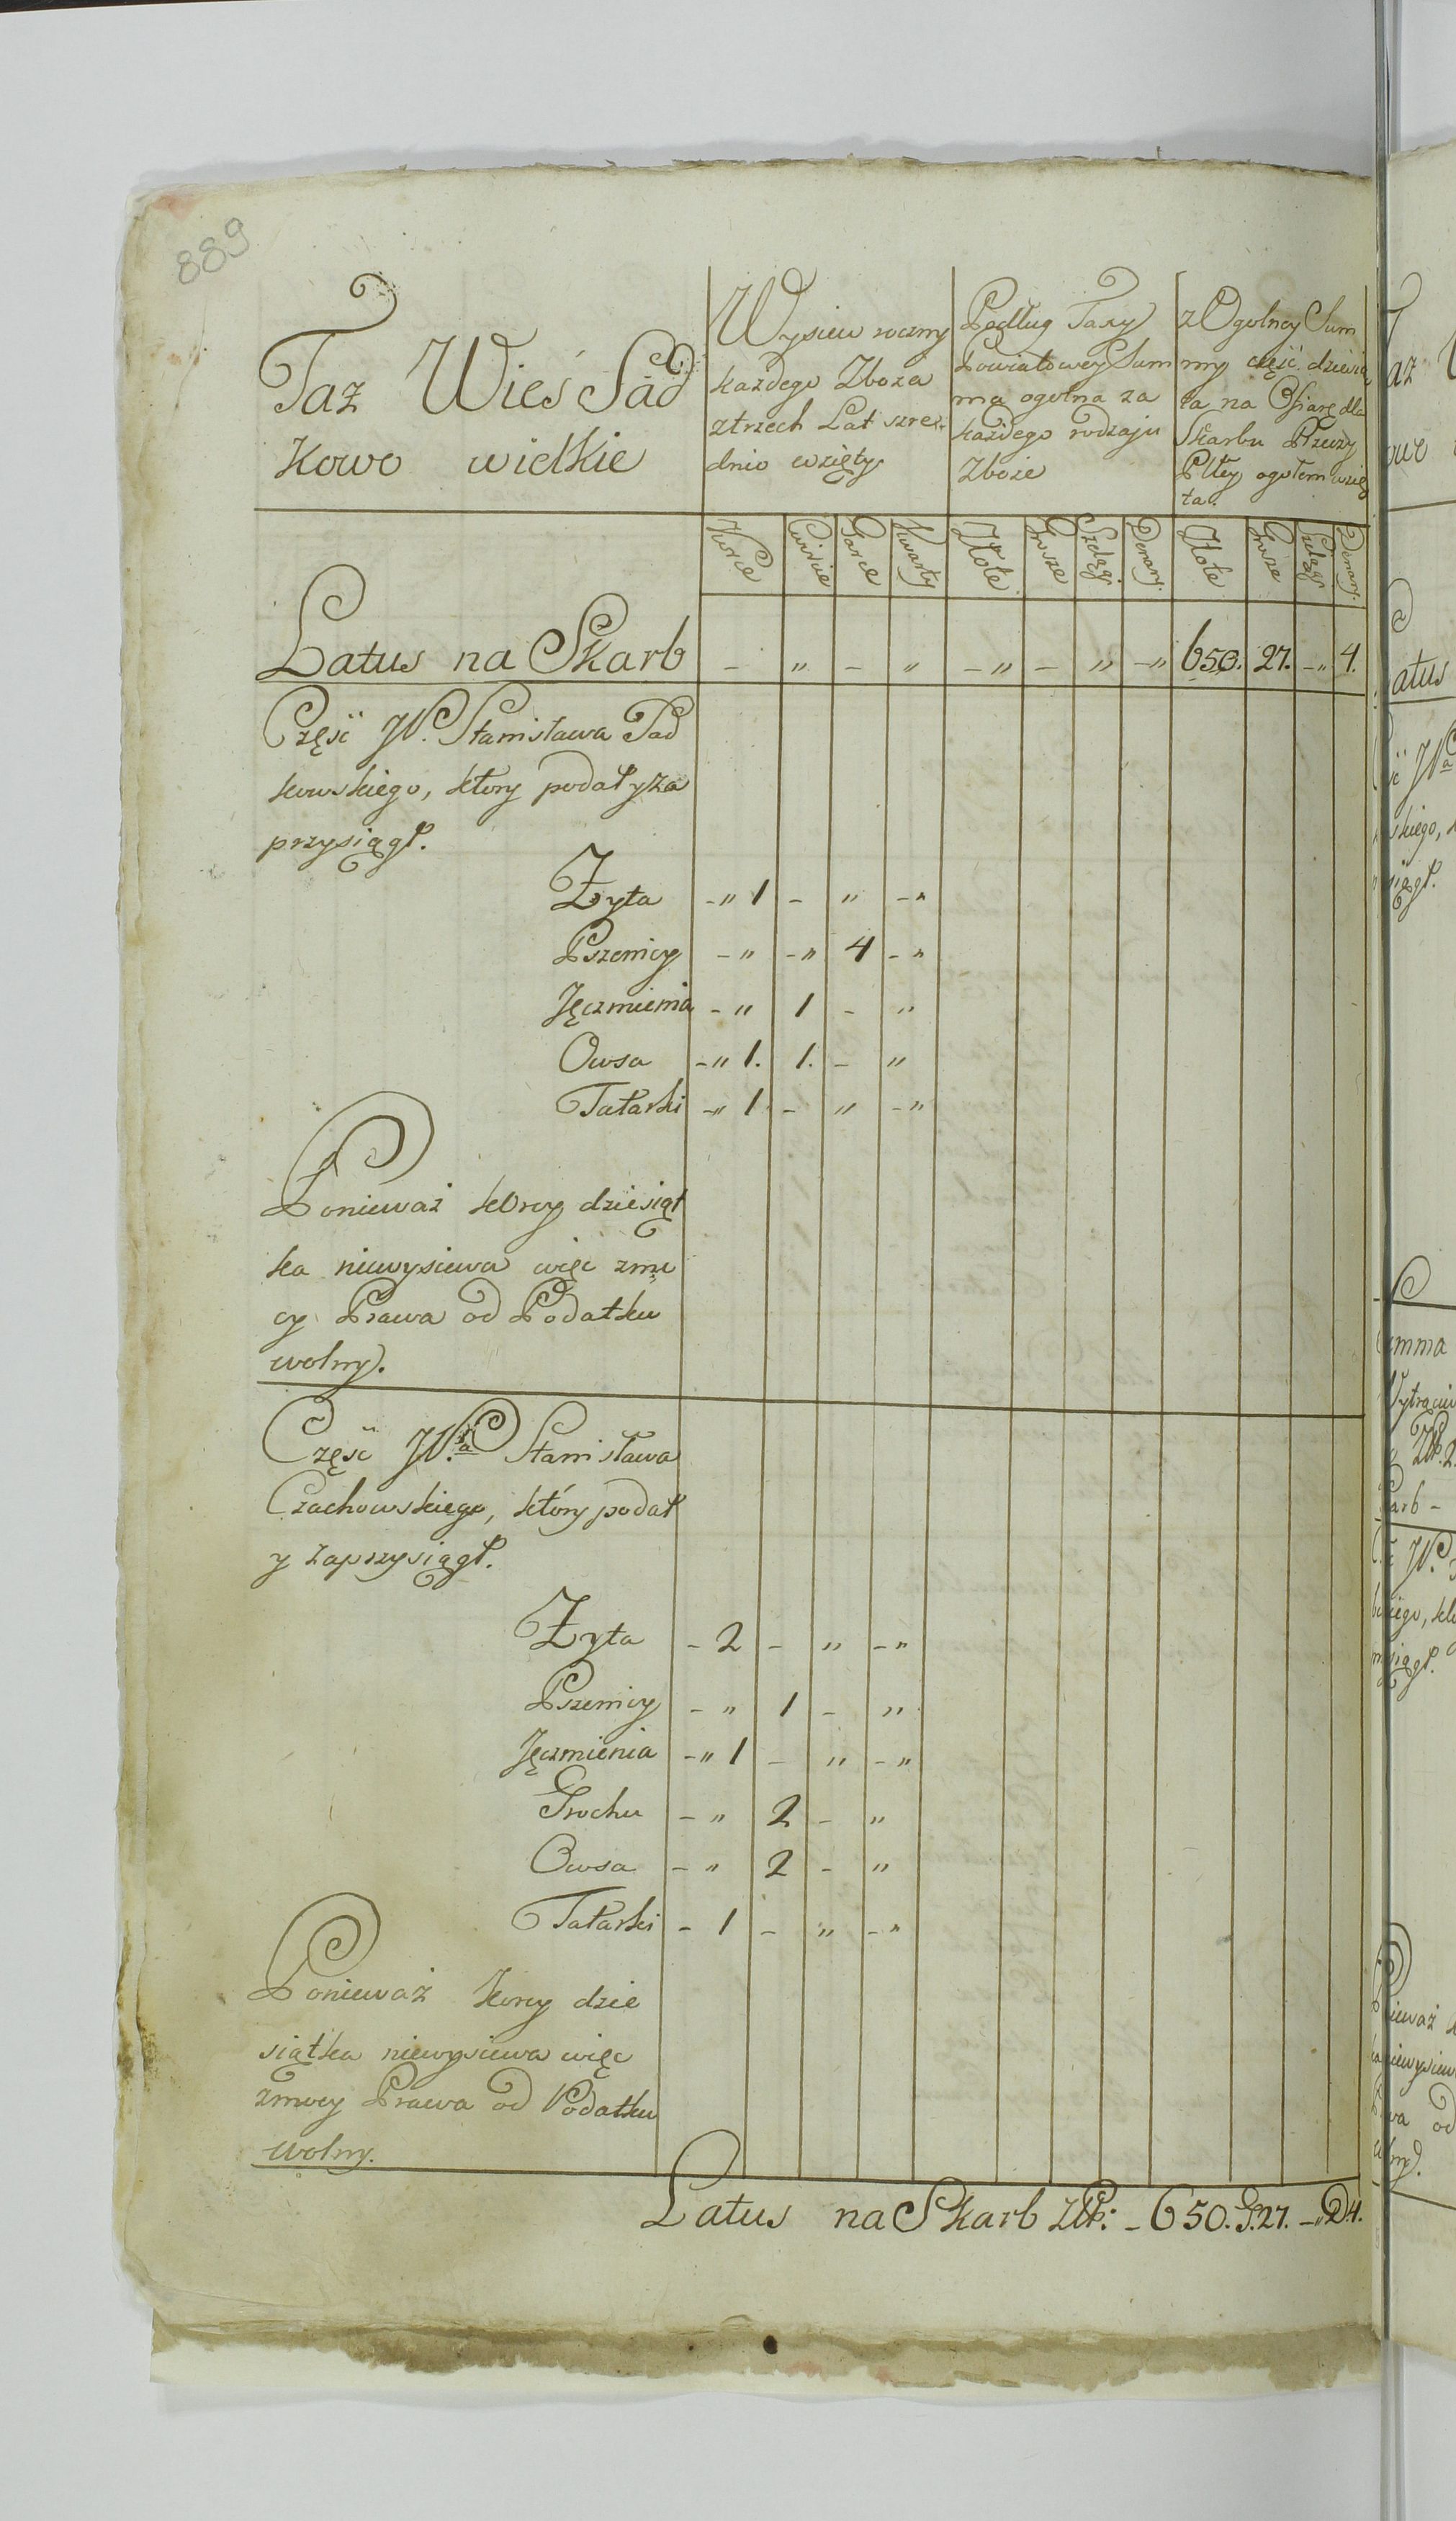 889
Taż Wieś Sad
kowo wielkie
Wysiew roczny
każdego Zboża
ztrzech Lat szrze
dnio wzięty
Podług Taxy
Powiatowey Sum
ma ogolna za
każdego rodzaju
Zboże
z Ogolney Sum
my część dziewią
ta na Ofiarę dla
Skarbu Rzeczy
Pltey ogołem wzię
ta.
Korce Cwircie Garce Kwarty Złote Grosze Szelągi Denary Złote Grosze Szelągi Denary
Latus na Skarb - „ - „ - „ - „ - „ 650. 27. - „ 4.
Część JP. Stanisława Sad
kowskiego, ktory podał y za
przysiągł.
Żyta - „ 1 - „ - „
Pszenicy - „ - „ 4 - „
Jęczmienia - „ 1 - „
Owsa - „ 1. 1. - „
Tatarki - „ 1. - „ - „
Ponieważ korcy dziesiąt
ka niewysiewa więc zmo
cy Prawa od Podatku
wolny.
Część JP.a Stanisława
Czachowskiego, który podał
y zaprzysiągł.
Żyta - 2 - „ - „
Pszenicy - „ 1 - „
Jęczmienia - „ 1 - „ - „
Grochu - „ 2 - „
Owsa - „ 2 - „
Tatarki - 1 - „ - „
Ponieważ korcy dzie
siątka niewysiewa więc
zmocy Prawa od Podatku
wolny.
Latus na Skarb ZłP: - 650. G.27. - „ D4.